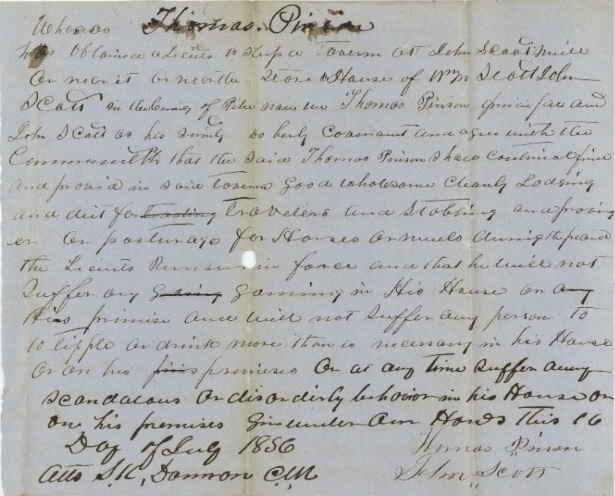 Whereas Thomas Pinson
has Obtained a Licens to Keep a Tavern at John Scoat mill
or near it or near the Store & House of Wm Scott John
Scott in the County of Pike now we Thomas Pinson princepal and
John Scott as his Surity do herby Covenant and agree with the
Commonwelth that the said Thomas Pinson Shall continualy find
and provid in said Tavern good wholesome cleanly Lodging
and diet for Travelers and Stabling and proven
er or pasturage for Horses or muels during the period
the Licens Remain in force and that he will not
Suffer any gaming in His House or on any
His premise and will not suffer any person to
to tipple or drink more than is necessary in his House
or on his premises Or at any time Suffer any
scandalous or disorderly behavior in his House or
on his premises Given under Our Hands This 16
Day of July 1856 Thomas Pinson
Atts S.K. Damron C.M. John Scott